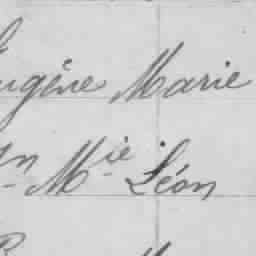 Eugène Marie
Jn Mie Léon